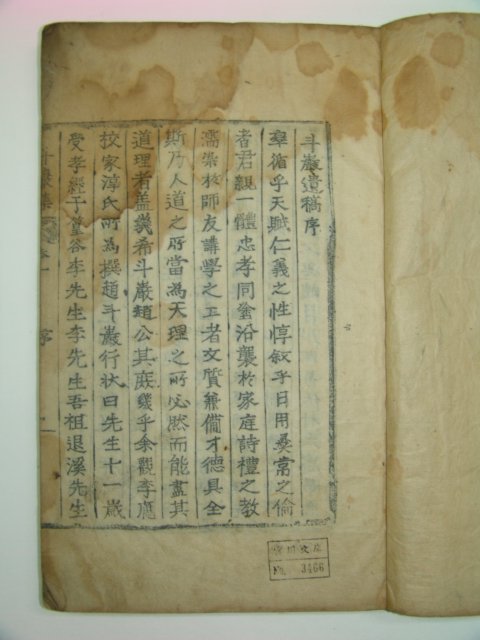 斗巖遺稿序
率循乎天賦仁義之性惇叙乎日用彝常之倫
者君親一體忠孝同塗沿襲於家庭詩禮之教
濡染於師友講學之工者文質兼備才德具全
斯乃人道之所當為天理之所必然而能盡其
道理者盖幾希斗巖趙公其庶幾乎余觀李
校家淳氏所為撰趙斗巖行狀曰先生十一歲
受孝經于篁谷李先生李先生吾祖退溪先生
斗巖集
序
No. 3466